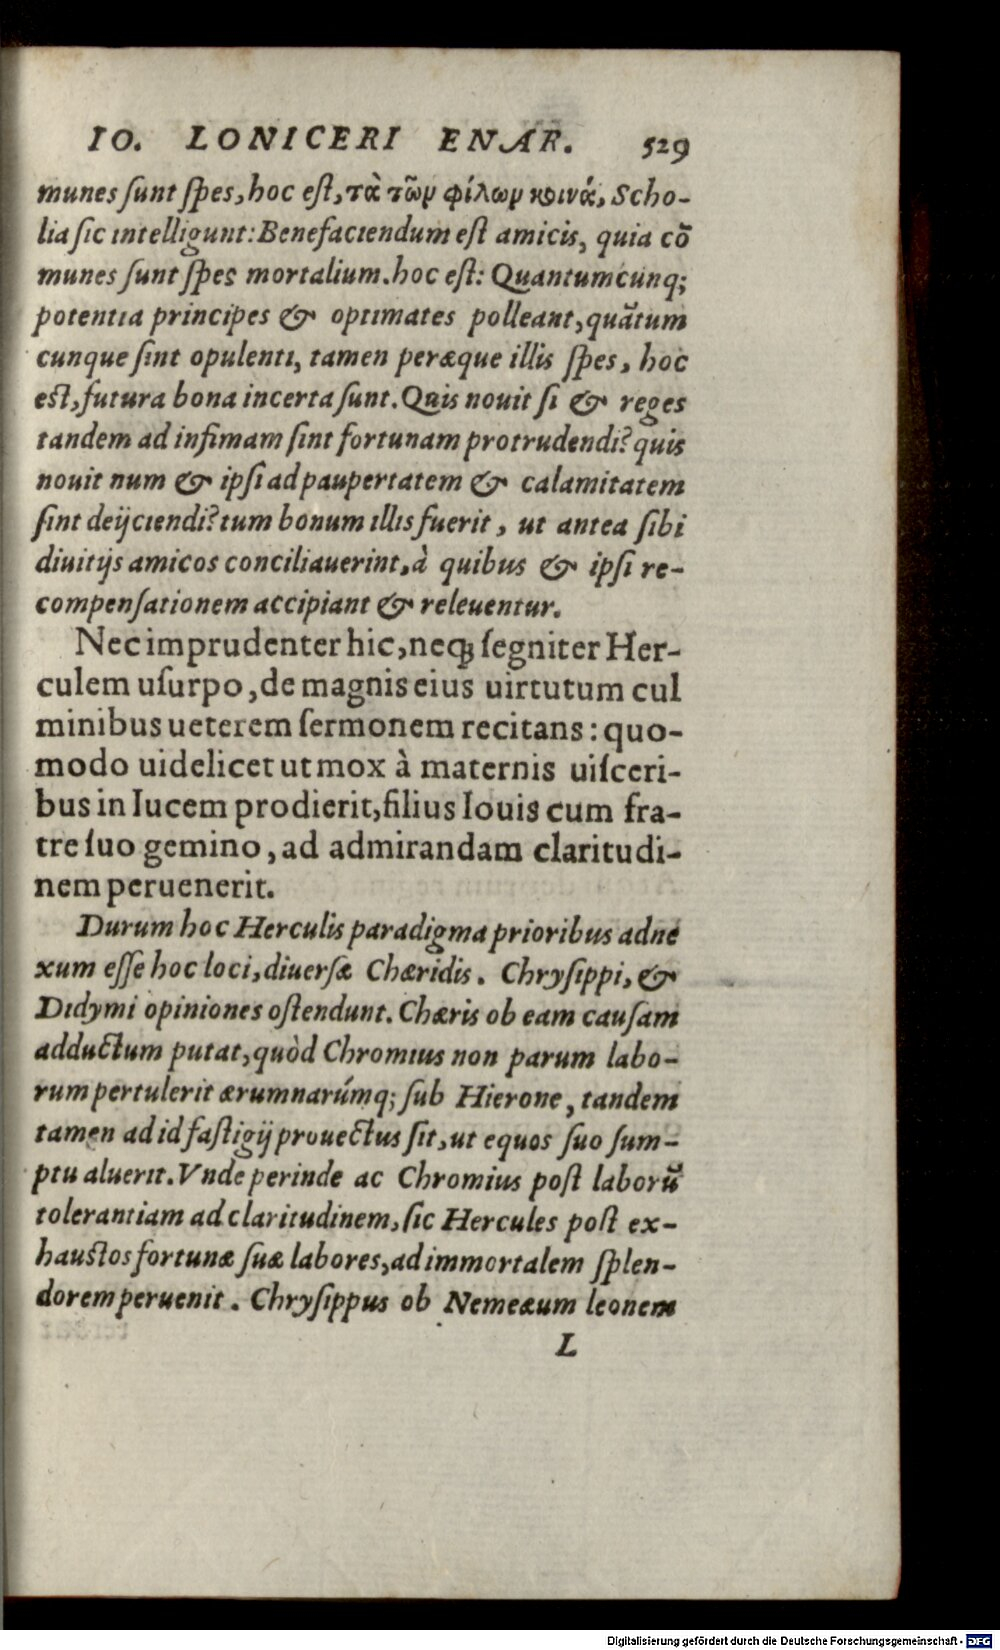 IO. LONICERI ENAR. 529
munes ſunt ſpes, hoc eſt, τὰ τῶν φίλων κοινά, Scho-
lia ſic intelligunt: Benefaciendum eſt amicis, quia cō
munes ſunt ſpes mortalium. hoc eſt: Quantumcunq;
potentia principes & optimates polleant, quātum
cunque ſint opulenti, tamen peræque illis ſpes, hoc
eſt, futura bona incerta ſunt. Quis nouit ſi & reges
tandem ad infimam ſint fortunam protrudendi? quis
nouit num & ipſi ad paupertatem & calamitatem
ſint deijciendi? tum bonum illis fuerit, ut antea ſibi
diuitijs amicos conciliauerint, à quibus & ipſi re-
compenſationem accipiant & releuentur.
Nec imprudenter hic, neq; ſegniter Her-
culem uſurpo, de magnis eius uirtutum cul
minibus ueterem ſermonem recitans: quo-
modo uidelicet ut mox à maternis uiſceri-
bus in lucem prodierit, filius Iouis cum fra-
tre ſuo gemino, ad admirandam claritudi-
nem peruenerit.
Durum hoc Herculis paradigma prioribus adne
xum eſſe hoc loci, diuerſæ Chæridis. Chryſippi, &
Didymi opiniones oſtendunt. Chæris ob eam cauſam
adductum putat, quòd Chromius non parum labo-
rum pertulerit ærumnarúmq; ſub Hierone, tandem
tamen ad id faſtigij prouectus ſit, ut equos ſuo ſum-
ptu aluerit. Vnde perinde ac Chromius poſt laborū
tolerantiam ad claritudinem, ſic Hercules poſt ex-
hauſtos fortunæ ſuæ labores, ad immortalem ſplen-
dorem peruenit. Chryſippus ob Nemeæum leonem
L
Digitalisierung gefördert durch die Deutsche Forschungsgemeinschaft - DFG